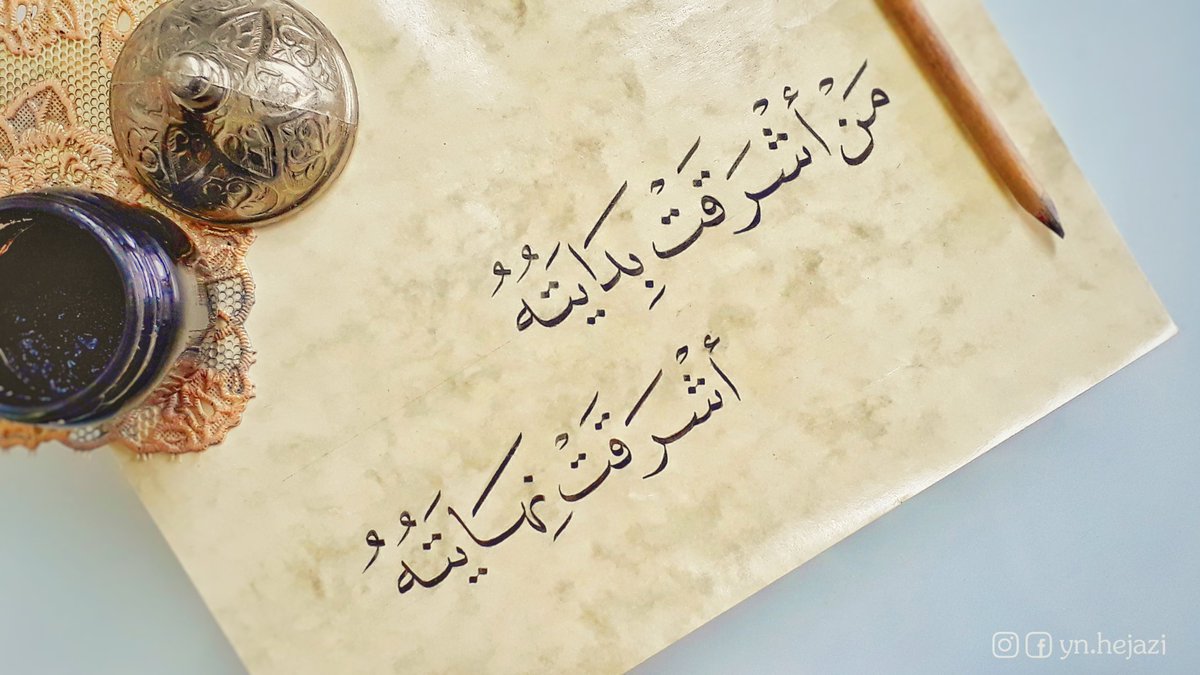 مَنْ أَشْرَقَتْ بِدَايَتُهُ
أَشْرَقَتْ نِهَايَتُهُ
yn.hejazi